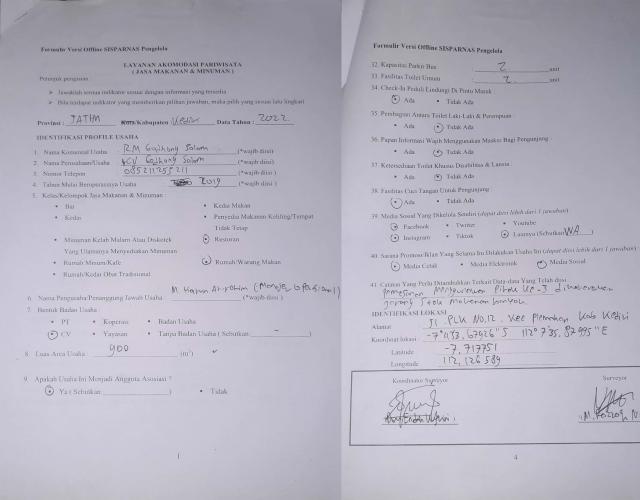 Formulir Versi Offline SISPARNAS Pengelola
LAYANAN AKOMODASI PARIWISATA
( JASA MAKANAN & MINUMAN )
Petunjuk pengisian :
➢ Jawablah semua indikator sesuai dengan informasi yang tersedia
➢ Bila terdapat indikator yang memberikan pilihan jawaban, maka pilih yang sesuai lalu lingkari
Provinsi : JATIM Kota/Kabupaten Kediri Data Tahun : 2022
IDENTIFIKASI PROFILE USAHA
1. Nama Komersial Usaha : RM Gajhong Solam (*wajib diisi)
2. Nama Perusahaan/Usaha : CV Gajhong Solam (*wajib diisi)
3. Nomor Telepon : 085211255211 (*wajib diisi )
4. Tahun Mulai Beroperasinya Usaha : 2019 (*wajib diisi )
5. Kelas/Kelompok Jasa Makanan & Minuman :
• Bar
• Kedai Makan
• Kedai
• Penyedia Makanan Keliling/Tempat
Tidak Tetap
• Minuman Kelab Malam Atau Diskotek
Yang Utamanya Menyediakan Minuman
• Restoran
• Rumah Minum/Kafe
• Rumah/Warung Makan
• Rumah/Kedai Obat Tradisional
6. Nama Pengusaha/Penanggung Jawab Usaha : M. (*wajib diisi )
7. Bentuk Badan Usaha :
• PT • Koperasi • Badan Usaha
• CV • Yayasan • Tanpa Badan Usaha ( Sebutkan - )
8. Luas Area Usaha : 900 (m²)
9. Apakah Usaha Ini Menjadi Anggota Asosiasi ?
• Ya ( Sebutkan ) • Tidak
1
Formulir Versi Offline SISPARNAS Pengelola
32. Kapasitas Parkir Bus : 2 unit
33. Fasilitas Toilet Umum : 2 unit
34. Check-In Peduli Lindungi Di Pintu Masuk :
• Ada • Tidak Ada
35. Pembagian Antara Toilet Laki-Laki & Perempuan :
• Ada • Tidak Ada
36. Papan Informasi Wajib Menggunakan Masker Bagi Pengunjung :
• Ada • Tidak Ada
37. Ketersediaan Toilet Khusus Disabilitas & Lansia :
• Ada • Tidak Ada
38. Fasilitas Cuci Tangan Untuk Pengunjung :
• Ada • Tidak Ada
39. Media Sosial Yang Dikelola Sendiri (dapat diisi lebih dari 1 jawaban)
• Facebook • Twitter • Youtube
• Instagram • Tiktok • Lainnya (Sebutkan WA )
40. Sarana Promosi/Iklan Yang Selama Ini Dilakukan Usaha Ini (dapat diisi lebih dari 1 jawaban)
• Media Cetak • Media Elektronik • Media Sosial
41. Catatan Yang Perlu Ditambahkan Terkait Data-data Yang Telah diisi
IDENTIFIKASI LOKASI
Alamat : Jl. PLK No.12. Kec Plemahan Kab Kediri
Koordinat lokasi :
Latitude : -7,717751
Longitude : 112,126589
Koordinator Surveyor
Surveyor
4